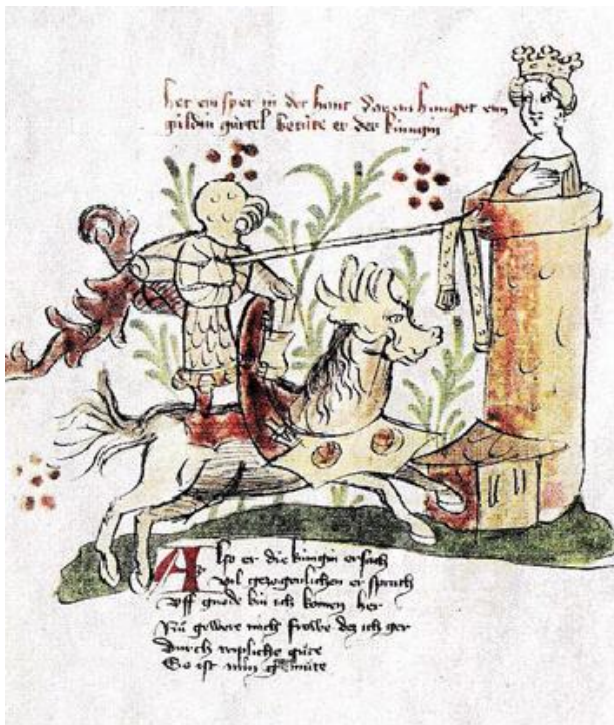 het ein sper in der hant dar an hanget ein
guldin gürtel betüte er der künigin
Also er die künigin ersach
vil gezogenlichen er sprach
Vff gnade bin ich komen her
Nü gewere mich frowe des ich ger
Durch wipliche güte
So ist min gemüte